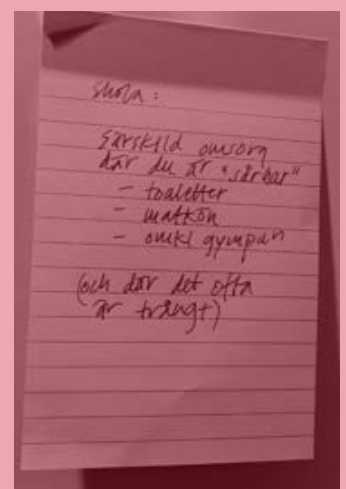 skola:
särskild omsorg
där du är "sårbar"
- toaletter
- matkön
- omkl gympan
(och där det ofta
är trångt)